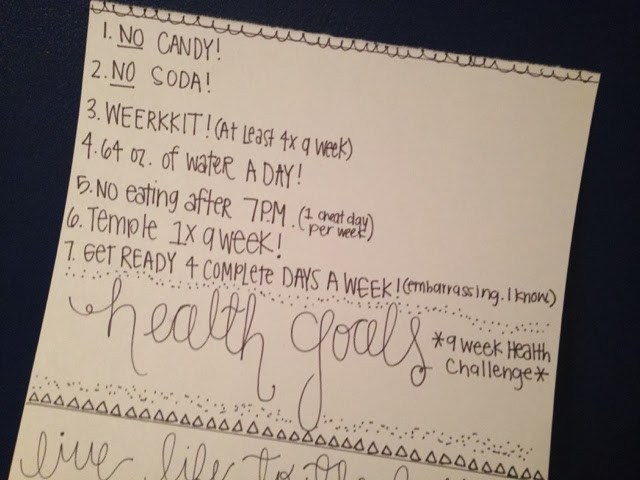 1. NO CANDY!
2. NO SODA!
3. WEERKKIT! (At least 4x a week)
4. 64 oz. of water A DAY!
5. NO eating after 7P.M. (1 cheat day per week)
6. Temple 1x a week!
7. GET READY 4 COMPLETE DAYS A WEEK! (embarrassing. I know)
health goals
*9 week Health
Challenge*
live life to the